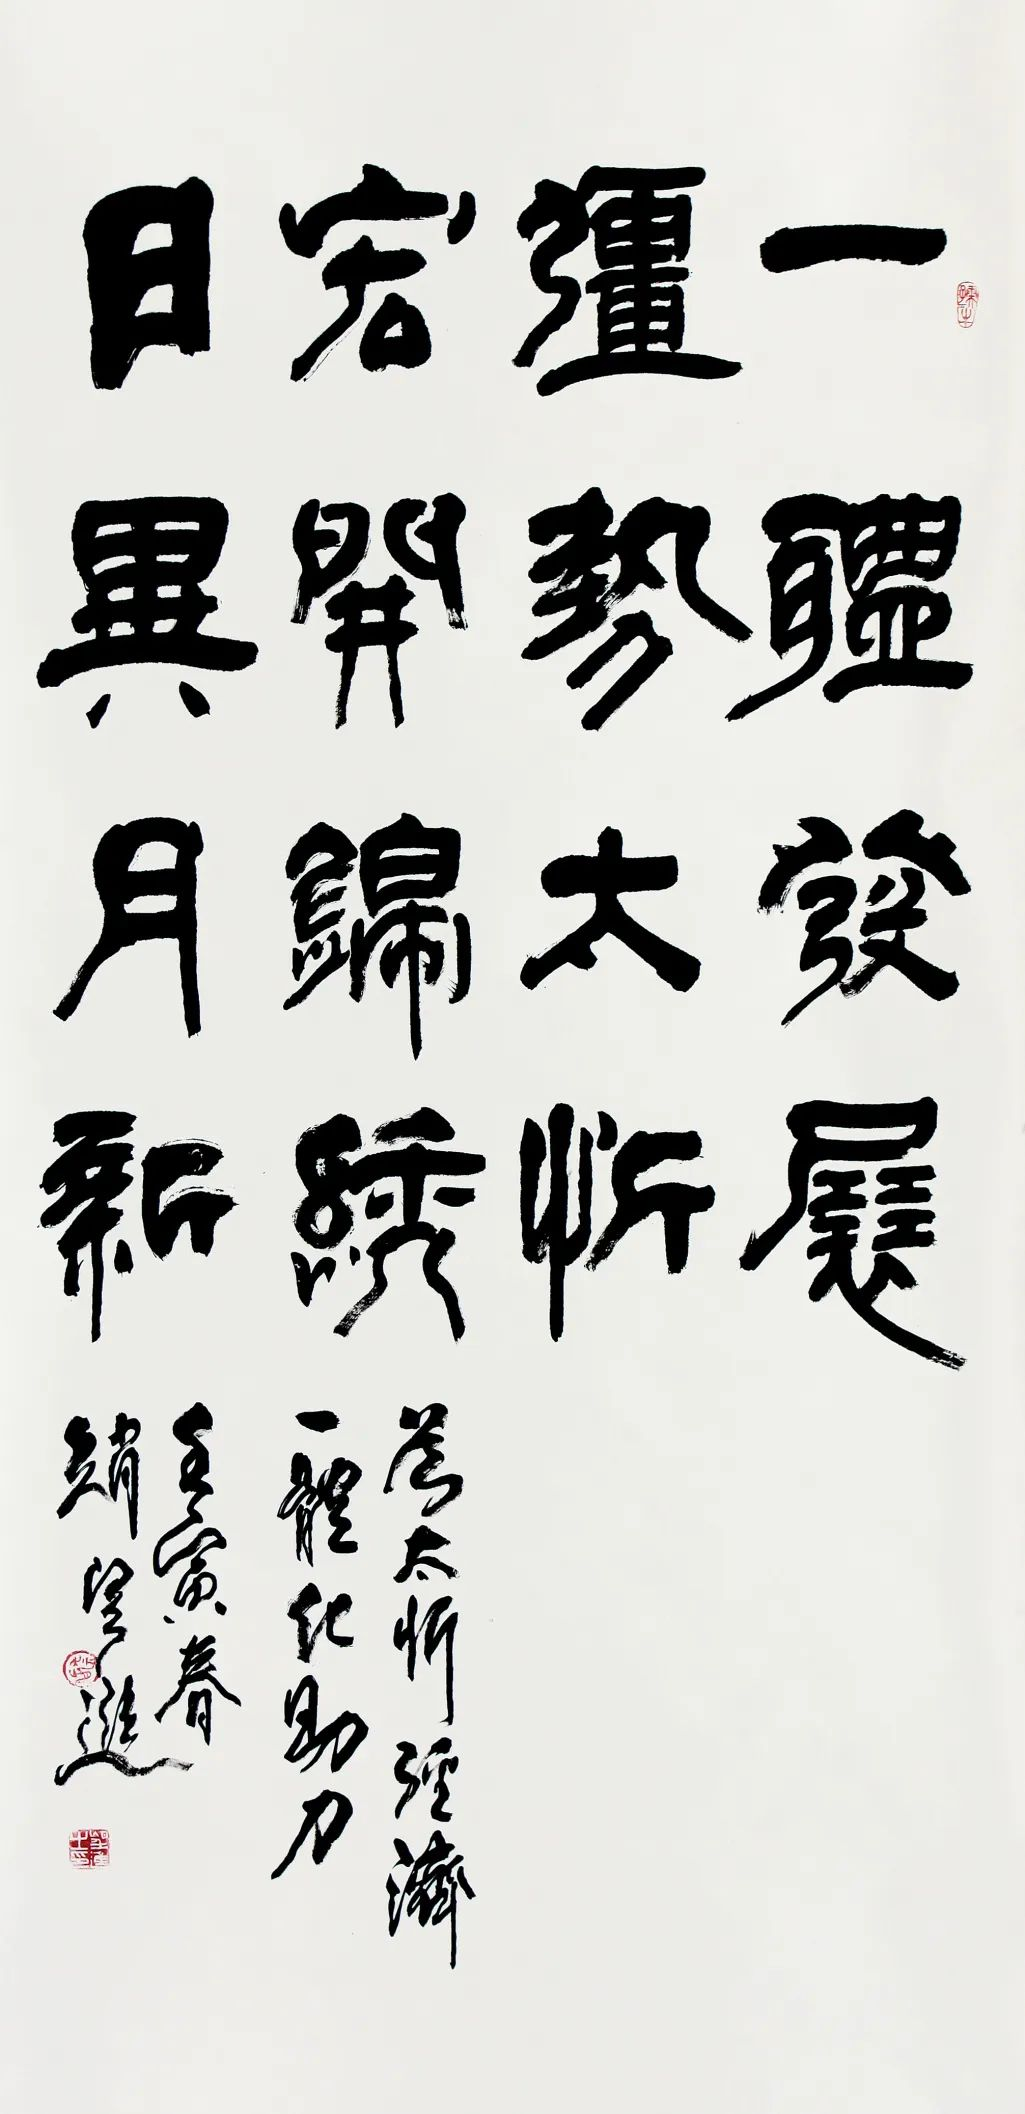 一軆發展
彊勢太忻
宏開錦綉
日異月新
為太忻經濟
一體化助力
壬寅春
趙望進